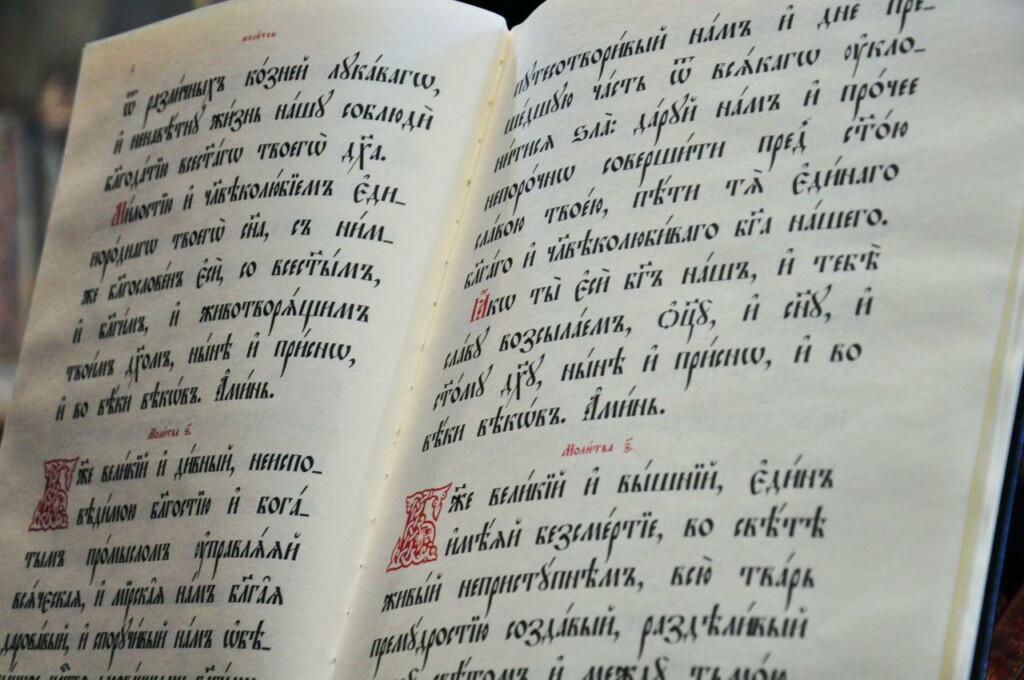 моли́твы
ѿ разли́чныхъ ко́зней лꙋка́вагѡ,
и҆ ненавѣ́тнꙋ жи́знь на́шꙋ соблюдѝ
бл҃года́тїю всест҃а́гѡ твоегѡ̀ дх҃а.
Ми́лостїю и҆ чл҃вѣколю́бїемъ є҆ди_
норо́днагѡ твоегѡ̀ сн҃а, съ ни́м_
же бл҃гослове́нъ є҆сѝ, со всест҃ы́мъ,
и҆ бл҃ги́мъ, и҆ животворѧ́щимъ
твои́мъ дх҃омъ, ны́нѣ и҆ при́снѡ,
и҆ во вѣ́ки вѣкѡ́въ. А҆ми́нь.
Моли́тва ѕ҃.
Бж҃е вели́кїй и҆ ди́вный, неиспо_
вѣди́мою бл҃гостїю и҆ бога́_
тымъ про́мысломъ ᲂу҆правлѧ́ѧй
всѧ́чєскаѧ, и҆ мїрска̑ѧ на́мъ бл҃га̑ѧ
дарова́вый, и҆ спорꙋчи́вый на́мъ ѡ҆бѣ_
пꙋтесотвори́вый на́мъ и҆ днѐ пре_
ше́дшꙋю ча́сть ѿ всѧ́кагѡ ᲂу҆кло_
ни́тисѧ ѕла̀: да́рꙋй на́мъ и҆ про́чее
непоро́чнѡ соверши́ти пред̾ ст҃о́ю
сла́вою твое́ю, пѣ́ти тѧ̀ є҆ди́наго
бл҃га́го и҆ чл҃вѣколюби́ваго бг҃а на́шего.
Ꙗ҆́кѡ ты̀ є҆сѝ бг҃ъ на́шъ, и҆ тебѣ̀
сла́вꙋ возсыла́емъ, ѻ҆ц҃ꙋ̀, и҆ сн҃ꙋ, и҆
ст҃о́мꙋ дх҃ꙋ, ны́нѣ и҆ при́снѡ, и҆ во
вѣ́ки вѣкѡ́въ. А҆ми́нь.
Моли́тва з҃.
Бж҃е вели́кїй и҆ вы́шнїй, є҆ди́нъ
и҆мѣ́ѧй безсме́ртїе, во свѣ́тѣ
живы́й непристꙋ́пнѣмъ, всю̀ тва́рь
премꙋ́дростїю созда́вый, раздѣли́вый
свѣ́томъ и҆ междꙋ̀ тьмо́ю